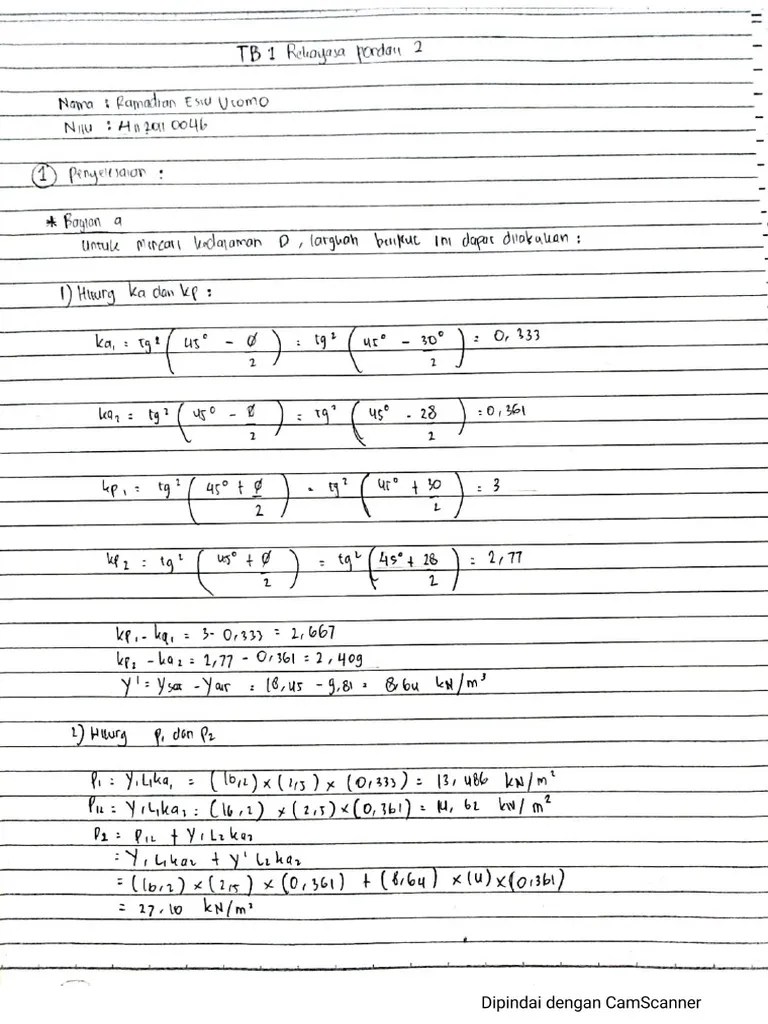 TB 1 Rekayasa pondasi 2
Nama : Ramadian Esiu Utomo
NIM : 41120110046
① Penyelesaian :
* Bagian a
untuk mencari kedalaman D, langkah berikut ini dapat dilakukan :
1) Hitung ka dan kp :
ka₁ = tg² (45° - ∅/2) = tg² (45° - 30°/2) = 0,333
ka₂ = tg² (45° - ∅/2) = tg² (45° - 28/2) = 0,361
kp₁ = tg² (45° + ∅/2) = tg² (45° + 30/2) = 3
kp₂ = tg² (45° + ∅/2) = tg² (45° + 28/2) = 2,77
kp₁ - ka₁ = 3 - 0,333 = 2,667
kp₂ - ka₂ = 2,77 - 0,361 = 2,409
γ' = γsat - γair = 18,45 - 9,81 = 8,64 kN/m³
2) Hitung P₁ dan P₂
P₁ = γ₁L₁ka₁ = (16,2) × (2,5) × (0,333) = 13,486 kN/m²
P₁₂ = γ₁L₁ka₂ = (16,2) × (2,5) × (0,361) = 14,62 kN/m²
P₂ = P₁₂ + γ₁L₂ka₂
= γ₁L₁ka₂ + γ'L₂ka₂
= (16,2) × (2,5) × (0,361) + (8,64) × (4) × (0,361)
= 27,10 kN/m²
Dipindai dengan CamScanner